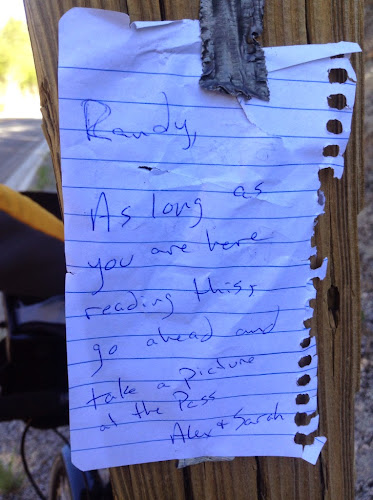 Randy,
As long as
you are here
reading this,
go ahead and
take a picture
at the Pass
Alex + Sarah